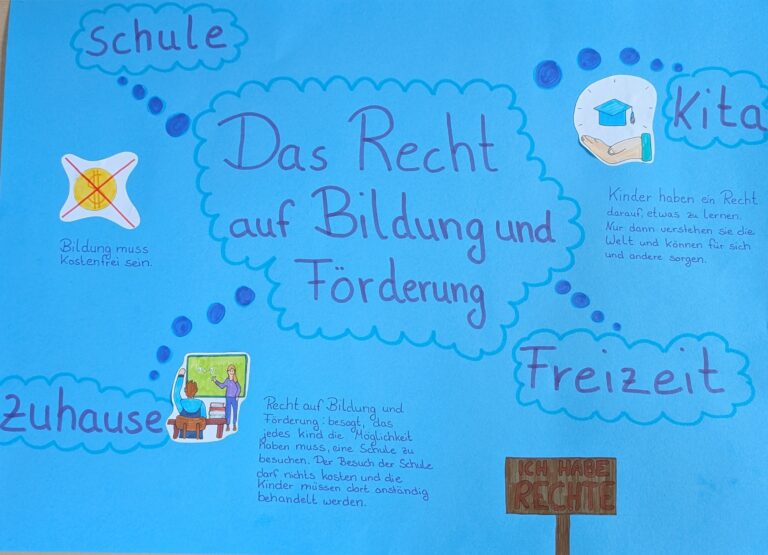 Schule
Kita
Das Recht
auf Bildung und
Förderung
Bildung muss
Kostenfrei sein.
Kinder haben ein Recht
darauf, etwas zu lernen.
Nur dann verstehen sie die
Welt und können für sich
und andere sorgen.
zuhause
Freizeit
Recht auf Bildung und
Förderung: besagt, das
jedes kind die Möglichkeit
haben muss, eine Schule zu
besuchen. Der Besuch der Schule
darf nichts kosten und die
Kinder müssen dort anständig
behandelt werden.
ICH HABE
RECHTE